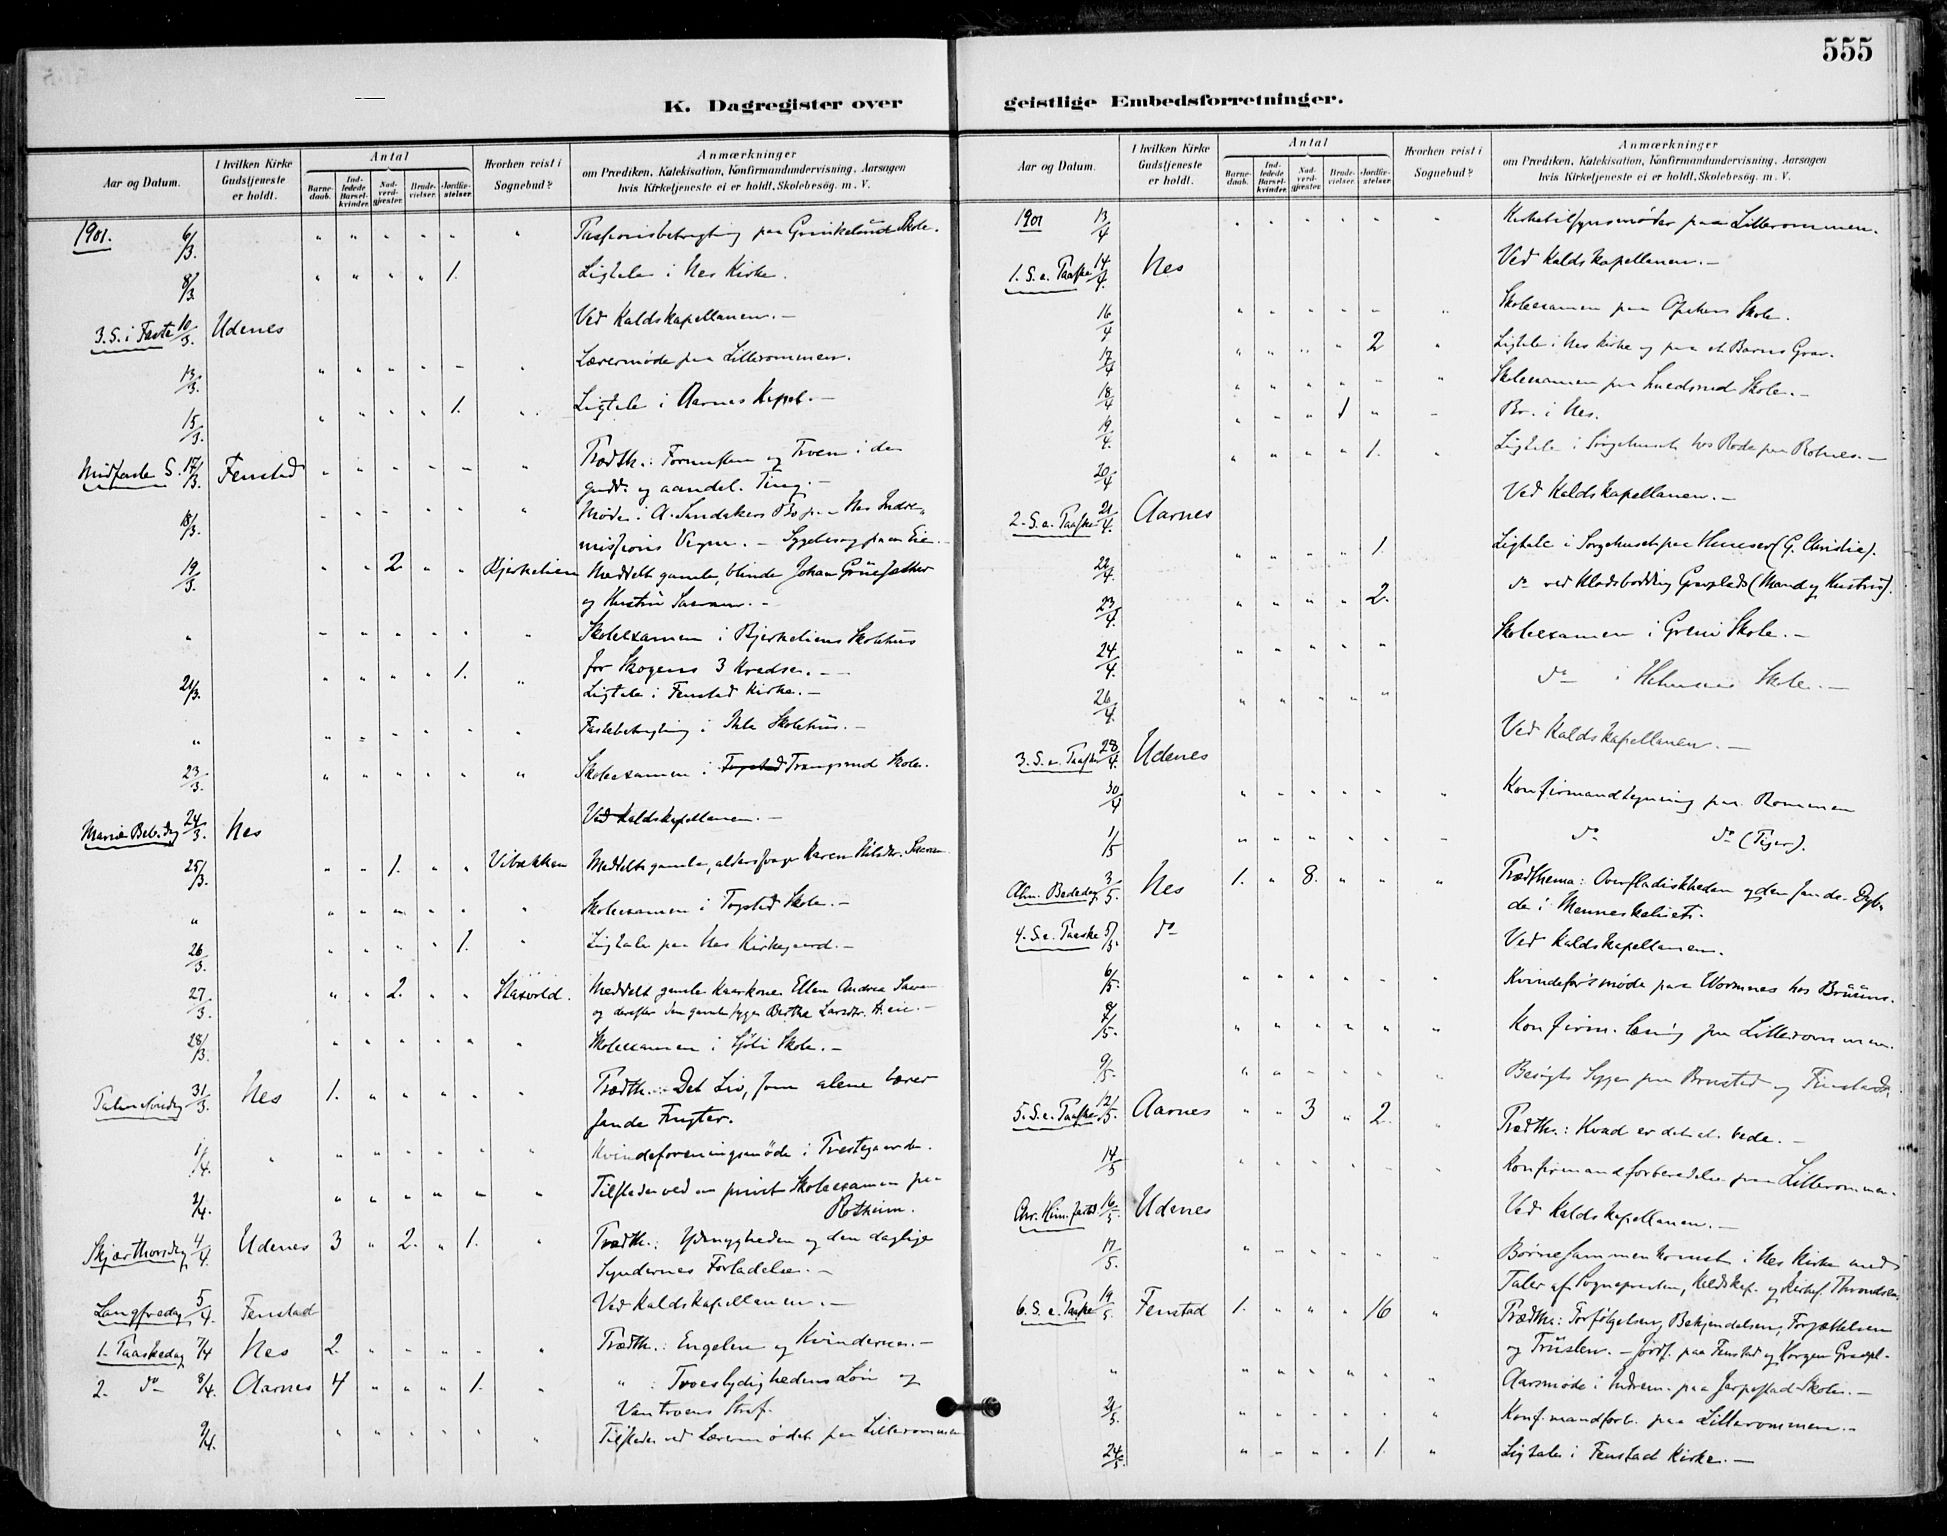 555
K. Dagregister over
Aar og Datum.
I hvilken Kirke Gudstjeneste er holdt.
Antal
Barnedaab.
Indledede Barselkvinder.
Nadverdgjester.
Brudevielser.
Jordfæstelser.
Hvorhen reist i Sognebud?
Anmærkninger
om Prædiken, Katekisation, Konfirmandundervisning, Aarsagen
hvis Kirketjeneste ei er holdt, Skolebesøg. m. V.
1901. 6/3 " " " " " " Passionsbetragtning paa Skole.
8/3 " " " " 1. Ligtale i Nes Kirke.
3. S. i Faste 10/3 Udenes Ved Kaldskapellanen. —
13/3 " " " " " " Lærermøde paa Lillerommen.
15/3 " " " " 1. " Ligtale i Aarnes Kapel. —
Midfaste S. 17/3 Fenstad " " " " " " Prædth.: og Troen i de
gudd. og aandel. Ting. —
18/3 " " " " " " Møde i A. Sandakers Bo paa Nes Indre-
missions Vegne. — Sygebesøg paa Eie. —
19/3 " " 2 " " Bjerkelien Meddelt gamle, blinde Johan
og Hustru Sacram. —
" " " " " " " Skoleexamen i Bjerkeliens Skolehus
for Skogens 3 Kredse. —
21/3. " " " " 1. " Ligtale i Fenstad Kirke. —
" " " " " " " Fastebetragtning i Skolehus. —
23/3. " " " " " " Skoleexamen i Fogstad Skole.
Mariæ Beb. dag 24/3. Nes Ved Kaldskapellanen. —
25/3. " " 1. " " Vibakken Meddelt gamle, Karen
" " " " " " " Skoleexamen i Fogstad Skole. —
26/3. " " " " 1. " Ligtale paa Nes Kirkegaard. —
27/3. " " 2. " " Meddelt gamle Kaarkone Ellen Andrea
og derefter den gamle syge Berthe Larsdtr.
28/3. " " " " " " Skoleexamen i Skole. —
Palmesøndag 31/3. Nes 1. " " " " " Prædth.: Det Liv, som alene bærer
sande Frugter.
1/4. " " " " " " Kvindeforeningsmøde i
2/4. " " " " " " Tilstede ved en privat Skoleexamen paa
Rotheim.
Skjærthorsdag 4/4 Udenes 3 " 2. " 1. " Prædth.: Ydmygheden og den daglige
Syndernes Forladelse. —
Langfredag 5/4 Fenstad Ved Kaldskapellanen. —
1. Paaskedag 7/4 Nes 2. " " " " " Prædth.: Engelen og Kvinderne. —
2. do 8/4. Aarnes 4 " " " 1. " " : Troeslydighedens Løn og
Vantroens Straf.
9/4. " " " " " " Tilstede ved Lærermødet paa Lillerommen
geistlige Embedsforretninger.
Aar og Datum.
I hvilken Kirke Gudstjeneste er holdt.
Antal
Barnedaab.
Indledede Barselkvinder.
Nadverdgjester.
Brudevielser.
Jordfæstelser.
Hvorhen reist i Sognebud?
Anmærkninger
om Prædiken, Katekisation, Konfirmandundervisning, Aarsagen
hvis Kirketjeneste ei er holdt, Skolebesøg. m. V.
1901 13/4 " " " " " " Kirketilsynsmøde paa Lillerommen.
1. S. e. Paaske 14/4. Nes Ved Kaldskapellanen. —
16/4 " " " " " Skoleexamen paa Skole.
17/4 " " " " 2 " Ligtale i Nes Kirke og paa et Barns Grav.
18/4 " " " " " " Skoleexamen paa Skole. —
19/4. " " " 1 " " Br. i Nes.
20/4 " " " " 1. " Ligtale i Sørgehuset hos paa —
2. S. e. Paaske 21/4. Aarnes Ved Kaldskapellanen. —
22/4. " " " " 1. Ligtale i Sørgehuset paa (G. Christie).
23/4. " " " " 2. do ved Gravplads (Mand og Hustru).
24/4. " " " " " Skoleexamen i Skole. —
26/4. " " " " " do i Skole. —
3. S. e. Paaske 28/4. Udenes Ved Kaldskapellanen. —
30/4 " " " " " " Konfirmandlæsning paa Rommen
1/5 " " " " " " do do (Piger).
Alm. Bededag 3/5. Nes 1. " 8. " " " Prædthema: Overfladiskheden og den sande Dyb-
de i Menneskelivet.
4. S. e. Paaske 5/5. do Ved Kaldskapellanen.
6/5 " " " " " " paa Wormnes hos
8/5. " " " " " " Konfirm. læsning paa Lillerommen.
9/5. " " " " " Besøgt Syge paa og
5. S. e. Paaske 12/5. Aarnes " " 3 " 2. " Prædth.: Hvad er det at bede. —
14/5 " " " " " " Konfirmandforberedelse paa Lillerommen.
Chr. Him. farts 16/5. Udenes Ved Kaldskapellanen. —
17/5. " " " " " " Børnesammenkomst i Nes Kirke med
Taler af Sognepresten, Kaldskap. og
6. S. e. Paaske 19/5. Fenstad 1. " " " 16 " Prædth.: Forfølgelsen, Bekjendelsen,
og Trøsten. — Jordf. paa Fenstad og Gravpl.
" " " " " " " Aarsmøde i Indrem. paa Skole. —
21/5. " " " " " " Konf. mandforb. paa Lillerommen. —
24/5. " " " " 1. " Ligtale i Fenstad Kirke. —